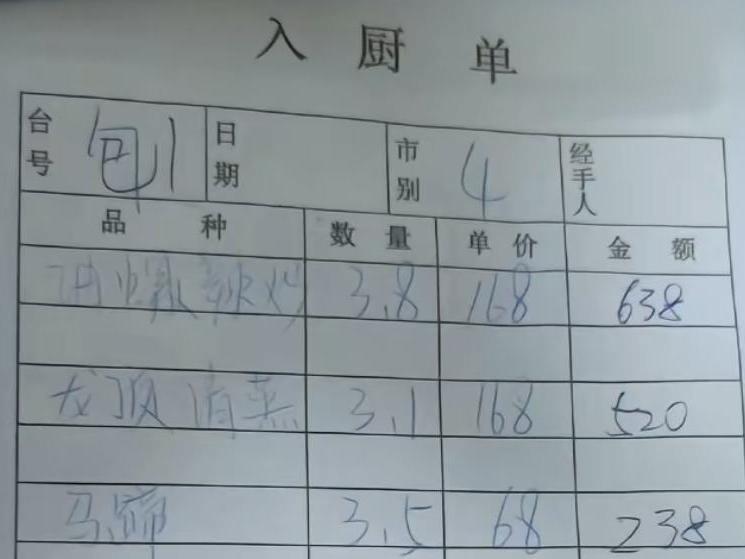 入厨单
台号 包1 日期 市别 4 经手人
品种 数量 单价 金额
3.8 168 638
龙顶 清蒸 3.1 168 520
马蹄 3.5 68 238